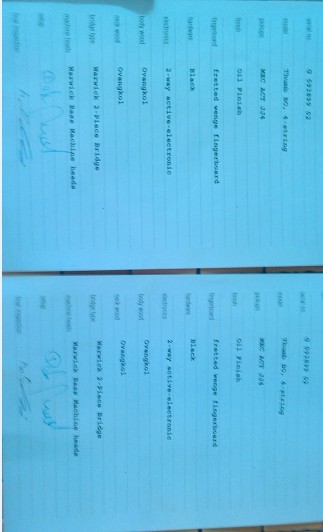 serial no. G 092899 02
model Thumb BO, 4-string
pickups MEC ACT JJ4
finish Oil Finish
fingerboard fretted wenge fingerboard
hardware Black
electronics 2-way active-electronic
body wood Ovangkol
neck wood Ovangkol
bridge type Warwick 2-Piece Bridge
machine heads Warwick Bass Machine heads
setup
final inspection
serial no. G 092899 02
model Thumb BO, 4-string
pickups MEC ACT JJ4
finish Oil Finish
fingerboard fretted wenge fingerboard
hardware Black
electronics 2-way active-electronic
body wood Ovangkol
neck wood Ovangkol
bridge type Warwick 2-Piece Bridge
machine heads Warwick Bass Machine heads
setup
final inspection